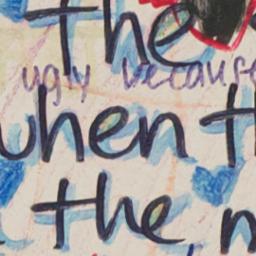 the
ugly because
when th
the, m